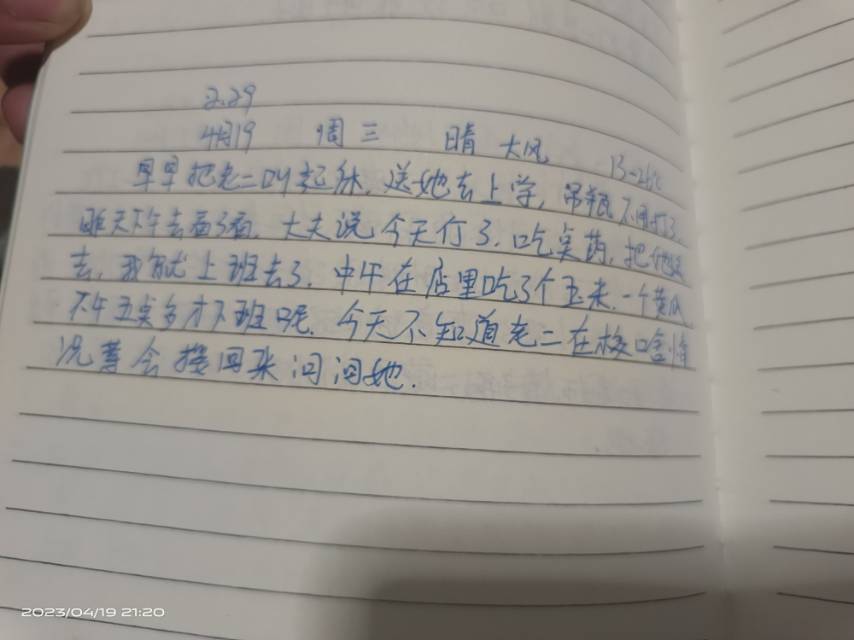 2.29
4月19 周三 晴 大风 13-26℃
早早把老二叫起休,送她去上学,吊瓶不用打了,
昨天下午去看了看,大夫说今天行了.吃点药,把她送
去,我就上班去了.中午在店里吃了个玉米.一个黄瓜
下午五点多才下班呢.今天不知道老二在校啥情
况等会接回来问问她.
2023/04/19 21:20